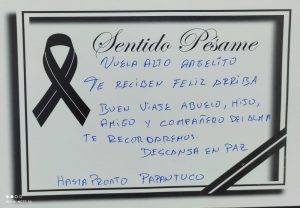 Sentido Pésame
VUELA ALTO ANGELITO
TE RECIBEN FELIZ ARRIBA
BUEN VIAJE ABUELO, HIJO,
AMIGO Y COMPAÑERO DEL ALMA
TE RECORDAREMOS.
DESCANSA EN PAZ
HASTA PRONTO PAPANTUCO